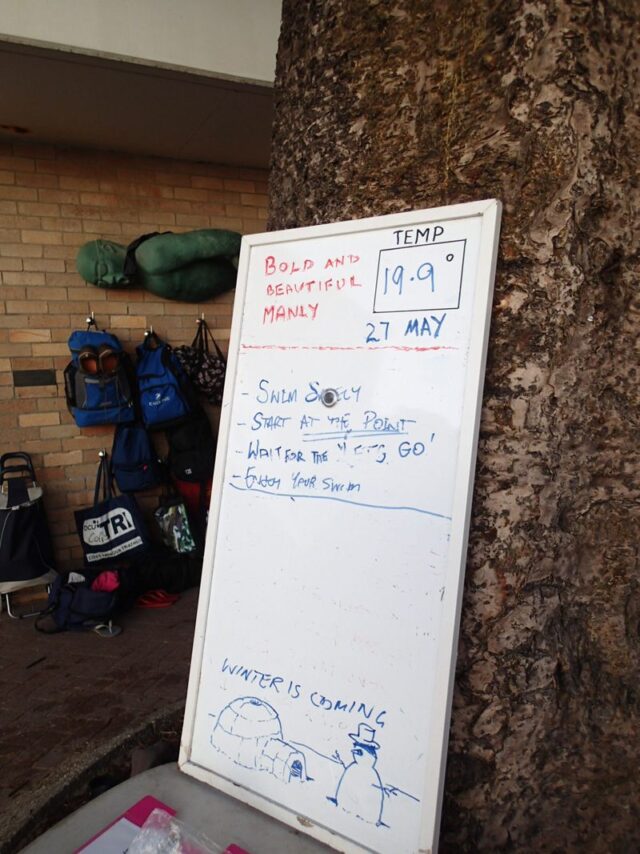 TEMP
19.9°
BOLD AND
BEAUTIFUL
MANLY
27 MAY
- SWIM
- START AT THE POINT
- WAIT FOR THE GO'
- ENJOY YOUR SWIM
WINTER IS COMING
TRI